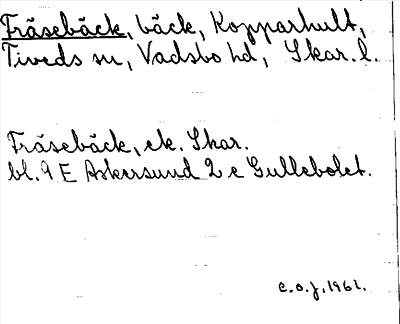 Fräsebäck, bäck, Kopparhult,
Tiveds sn, Vadsbo hd, Skar. l.
Fräsebäck, ek. Skar.
bl. 9 E Askersund 2 e Gullebolet.
e.o.j. 1961.